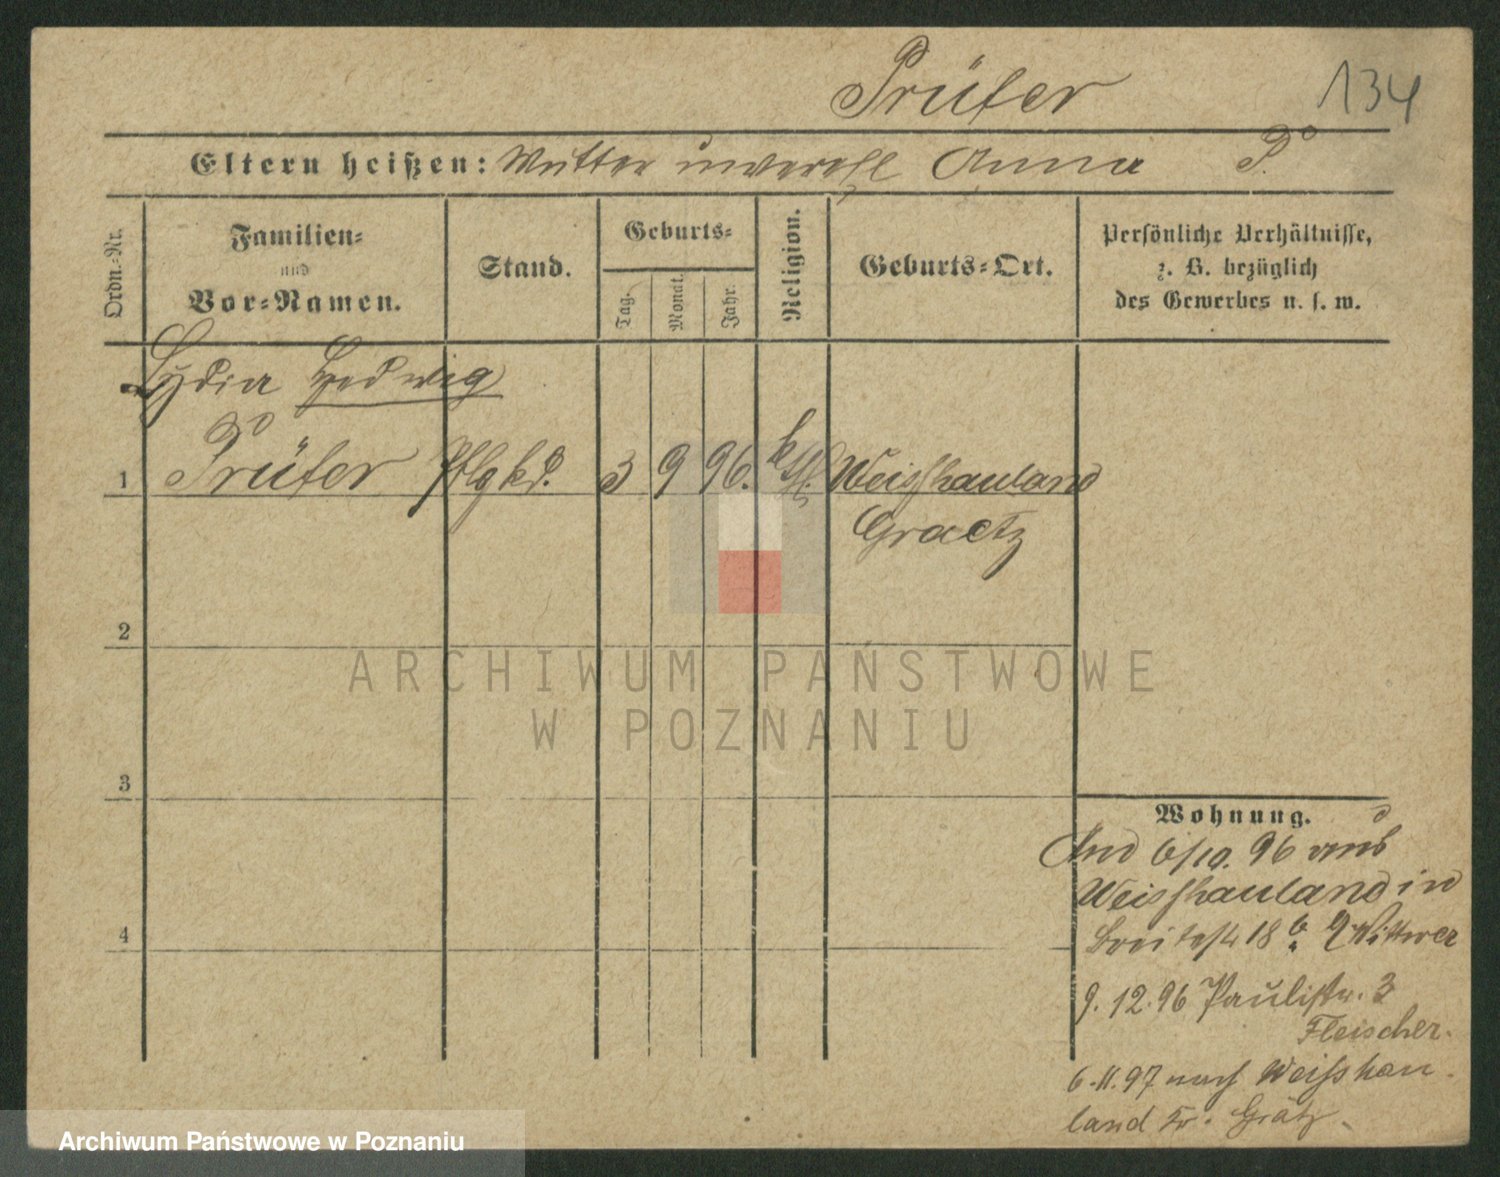 Prüfer 134
Eltern heißen: Mutter unverehl Anna P.
Ordn.-Nr.
Familien-
und
Vor-Namen.
Stand.
Geburts-
Tag.
Monat.
Jahr.
Religion.
Geburts-Ort.
Persönliche Verhältnisse,
z. B. bezüglich
des Gewerbes u. s. w.
Lydia Hedwig
1 Prüfer Pflgkd. 3 9 96. kth. Weisshauland
Graetz
2
3
4
Wohnung.
And 6/10. 96 aus
Weisshauland in
Breitestr 18 b Wittwer
9. 12. 96 Paulistr. 3
Fleischer.
6. 11. 97 nach Weisshau
land Kr. Grätz
ARCHIWUM PAŃSTWOWE
W POZNANIU
Archiwum Państwowe w Poznaniu